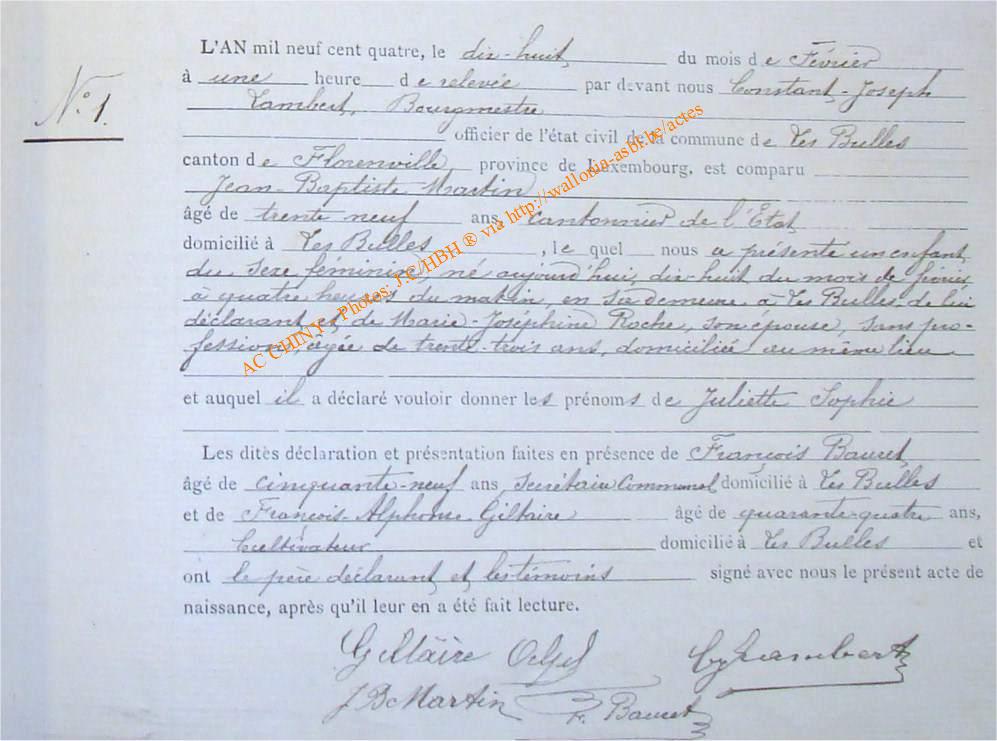 L'AN mil neuf cent quatre, le dix-huit du mois de Février
N° 1.
à une heure de relevée par devant nous Constant-Joseph
Lambert, Bourgmestre
officier de l'état civil de la commune de Les Bulles
canton de Florenville province de Luxembourg, est comparu
Jean-Baptiste Martin
âgé de trente neuf ans, cantonnier de l'Etat
domicilié à Les Bulles, lequel nous a présenté un enfant
du sexe féminin, né aujourd'hui, dix-huit du mois de février
à quatre heures du matin, en sa demeure à Les Bulles de lui
déclarant, et de Marie-Joséphine Roche, son épouse, sans pro-
fession, âgée de trente-trois ans, domiciliée au même lieu
et auquel il a déclaré vouloir donner les prénoms de Juliette Sophie
Les dites déclaration et présentation faites en présence de François Bauret,
âgé de cinquante-neuf ans, Secrétaire Communal domicilié à Les Bulles
et de François-Alphonse Giltaire âgé de quarante-quatre ans,
Cultivateur domicilié à Les Bulles et
ont le père déclarant, et les témoins signé avec nous le présent acte de
naissance, après qu'il leur en a été fait lecture.
Giltaire Lambert
J B Martin F. Bauret
AC CHINY - Photos: J.C/HBH ® via http://wallonia-asbl.be/actes